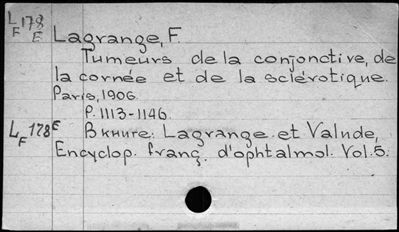 L 178
F E
Lagrange, F.
Tumeurs de la conjonctive, de
la cornée et de la sclérotique.
Paris, 1906.
P. 1113-1146.
LF 178E
В книге: Lagrange et Valude,
Encyclop. franç. d'ophtalmol. Vol.5.